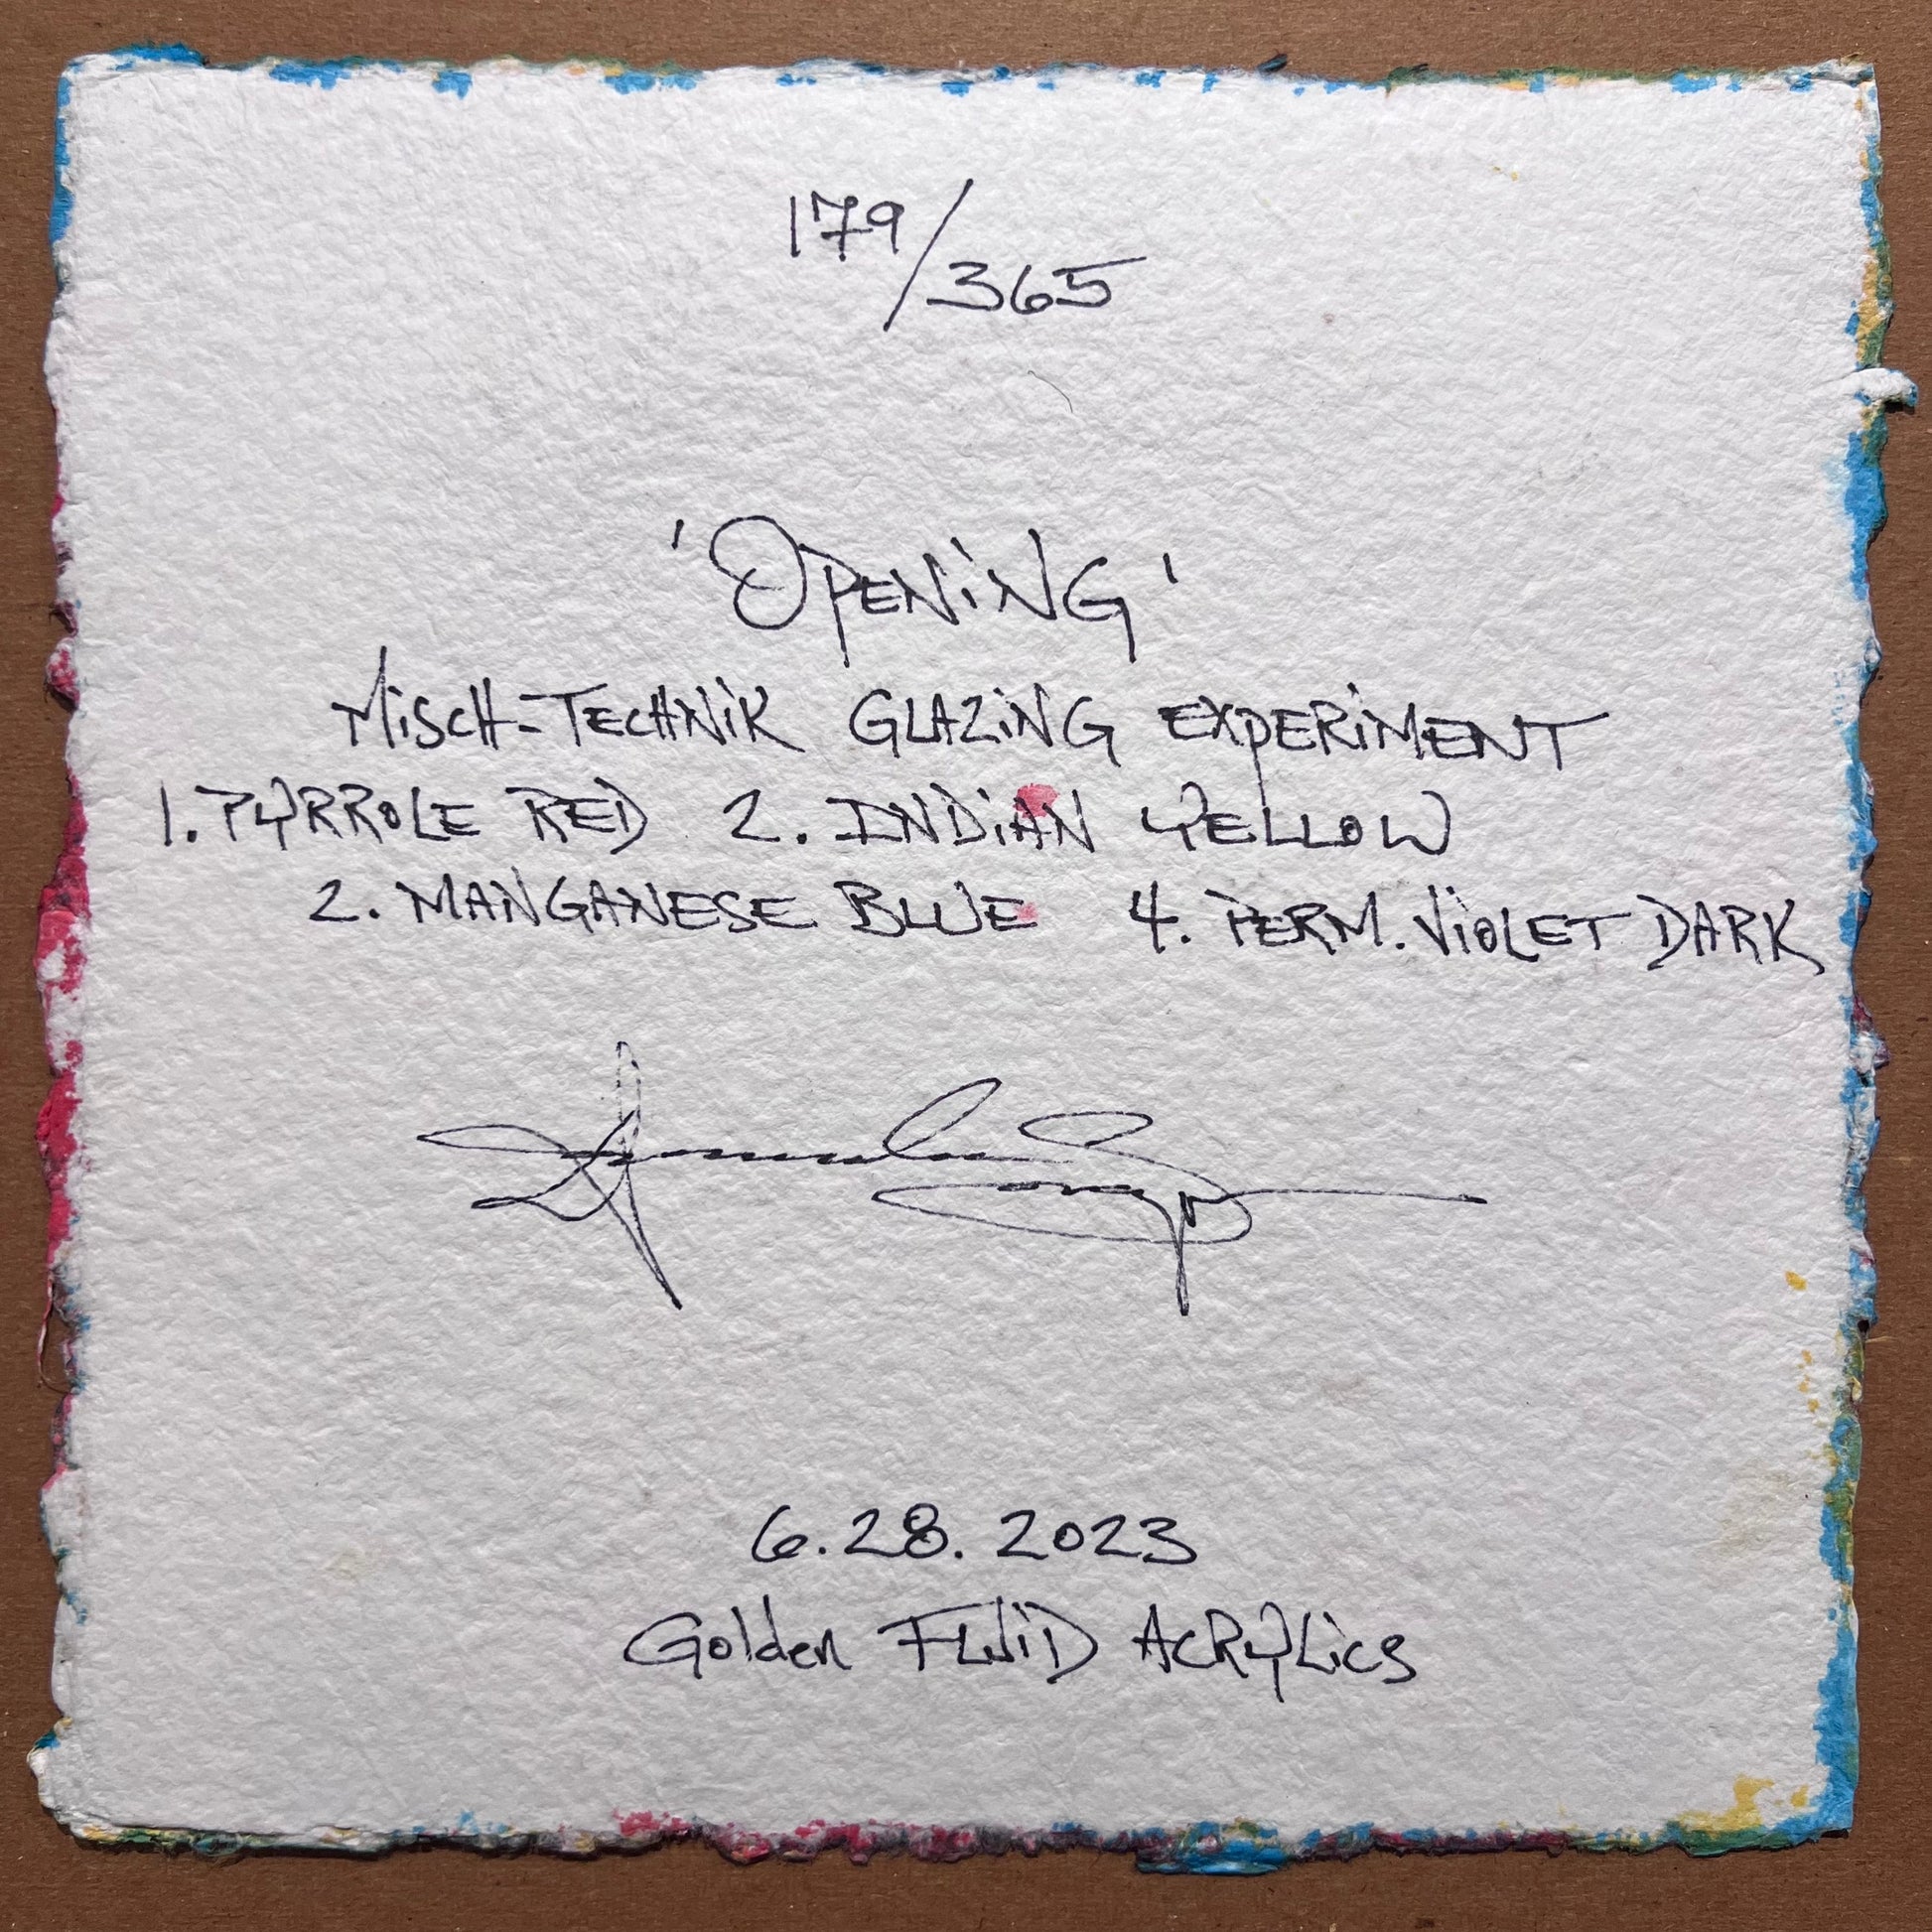 179/365
'OPENiNG'
MiSCH-TECHNiK GLAZiNG EXPERiMENT
1. PYRROLE RED 2. INDiAN YELLOW
2. MANGANESE BLUE 4. PERM. ViOLET DARK
6.28.2023
Golden FLUiD ACRYLics